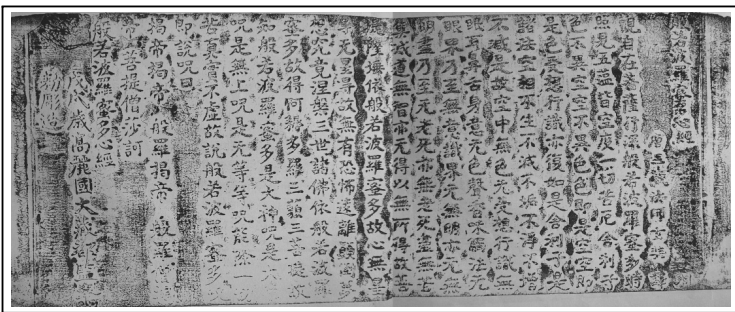 般若波羅蜜多心經
唐三藏法
觀自在菩薩行深般若波羅蜜多時
照見五蘊皆空度一切苦厄舍利子
色不異空空不異色色即是空空即
是色受想行識亦復如是舍利子是
諸法空相不生不滅不垢不淨不增
不減是故空中無色无受想行識無
眼耳鼻舌身意无色聲香味觸法无
眼界乃至無意識界无無明亦无無
明盡乃至无老死亦無老死盡無苦
集滅道無智亦无得以無所得故菩
提薩埵依般若波羅蜜多故心無罣
无罣礙故無有恐怖遠離顛倒夢
想究竟涅槃三世諸佛依般若波羅
蜜多故得阿耨多羅三藐三菩提故
知般若波羅蜜多是大神呪是大
呪是無上呪是无等等呪能除一切
苦真實不虛故說般若波羅蜜多
即說呪曰
揭帝揭帝 般羅揭帝 般羅僧
帝菩提僧莎訶
般若波羅蜜多心經
戊戌歲高麗國大藏都監
勅彫造